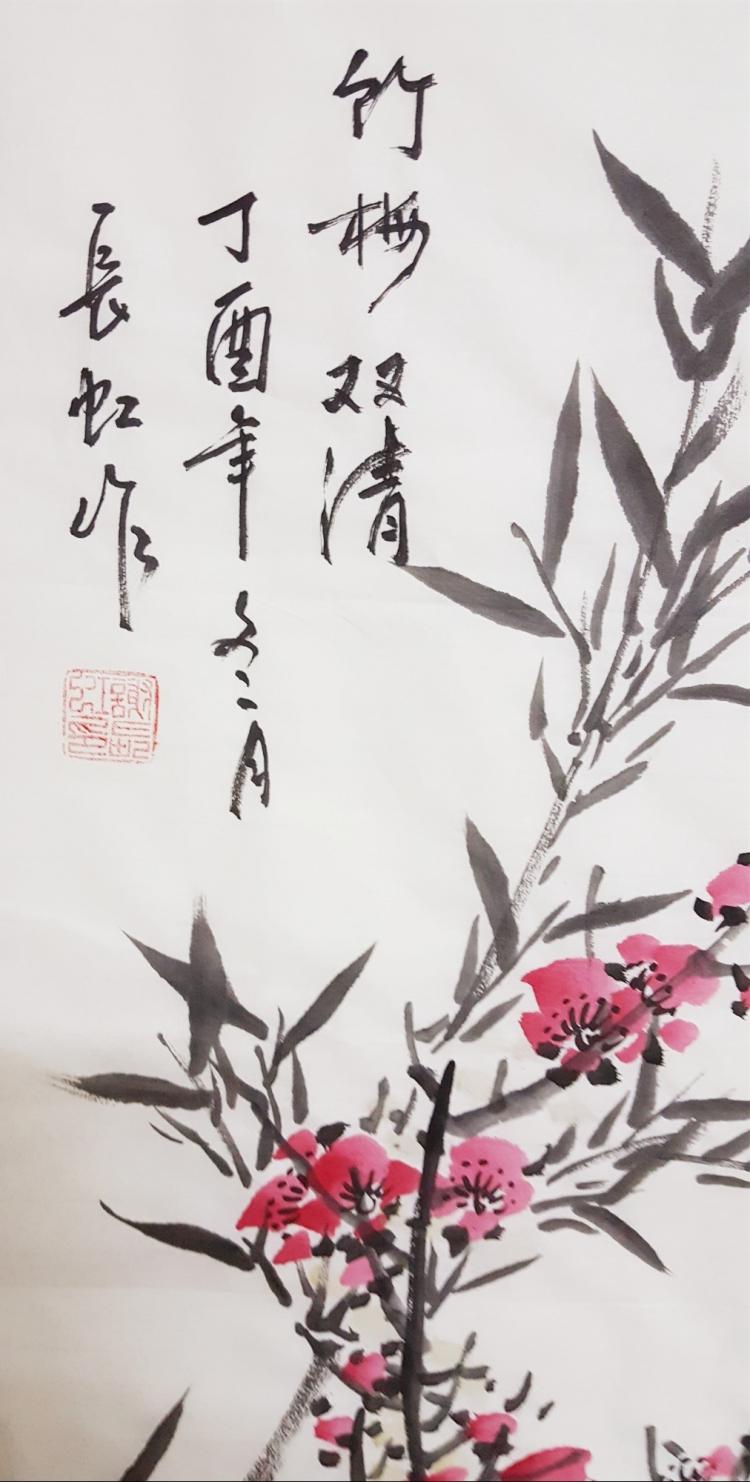 竹梅双清
丁酉年冬月
長虹作